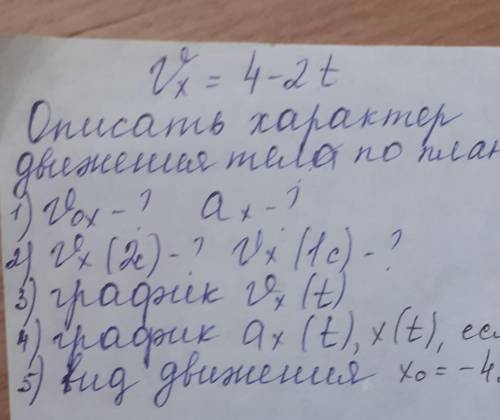 Vx = 4 - 2t
Описать характер
движения тела по план
1) Vox - ? ax - ?
2) Vx (2с) - ? Vx (1с) - ?
3) график Vx (t)
4) график ax (t), x(t), есл
5) вид движения x0 = -4